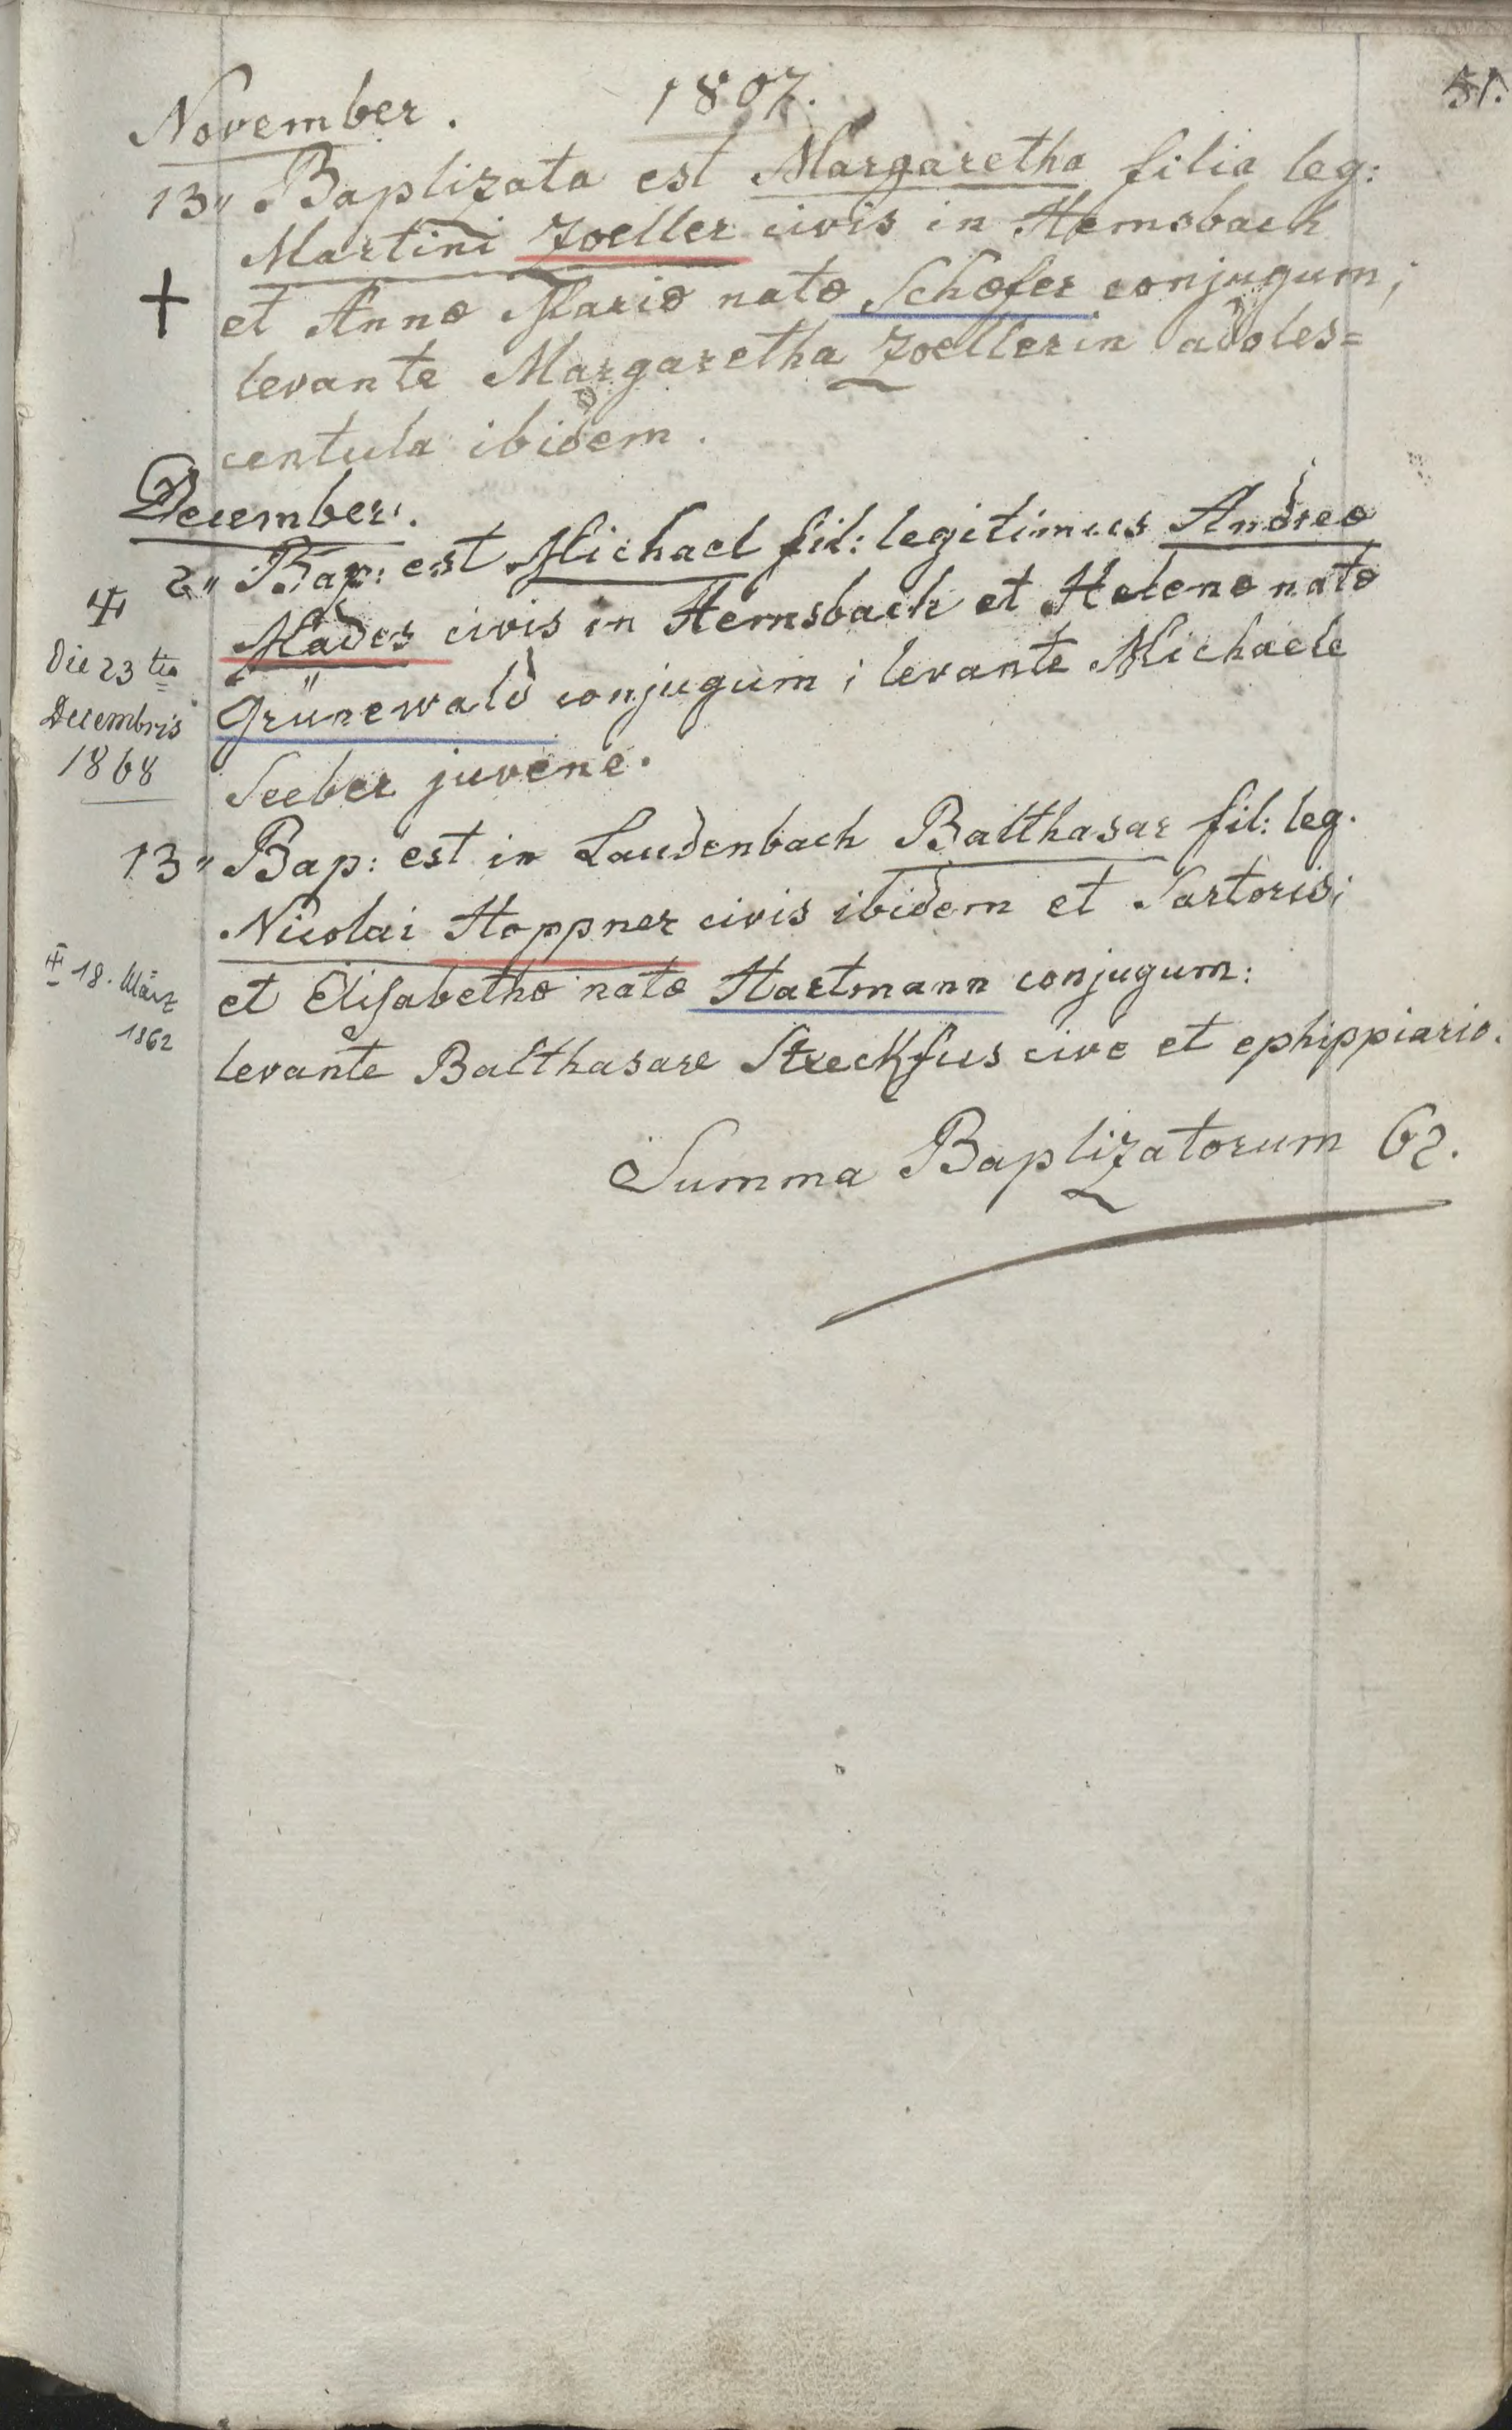 1807.
51.
November.
13" Baptizata est Margaretha filia leg:
Martini Zoeller civis in Hemsbach
+ et Annæ Mariæ natæ Schæfer conjugum;
levante Margaretha Zoellerin adoles=
centula ibidem.
December.
2" Bap: est Michael fil: legitimus Andreæ
Mades civis in Hemsbach et Helenæ natæ
Grünewald conjugum; levante Michaele
Seeber juvene.
Die 23 tia
Decembris
1868
13" Bap: est in Laudenbach Balthasar fil: leg.
Nicolai Hoppner civis ibidem et Sartoris;
et Elisabethæ natæ Hartmann conjugum:
levante Balthasare Streckfus cive et ephippiario.
18. März
1862
Summa Baptizatorum 62.